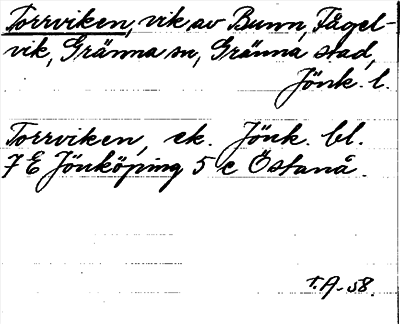 Torrviken, vik av Bunn, Fågel-
vik, Gränna sn, Gränna stad,
Jönk. l.
Torrviken, ek. Jönk. bl.
7 E Jönköping 5 c Östanå.
T.A-58.